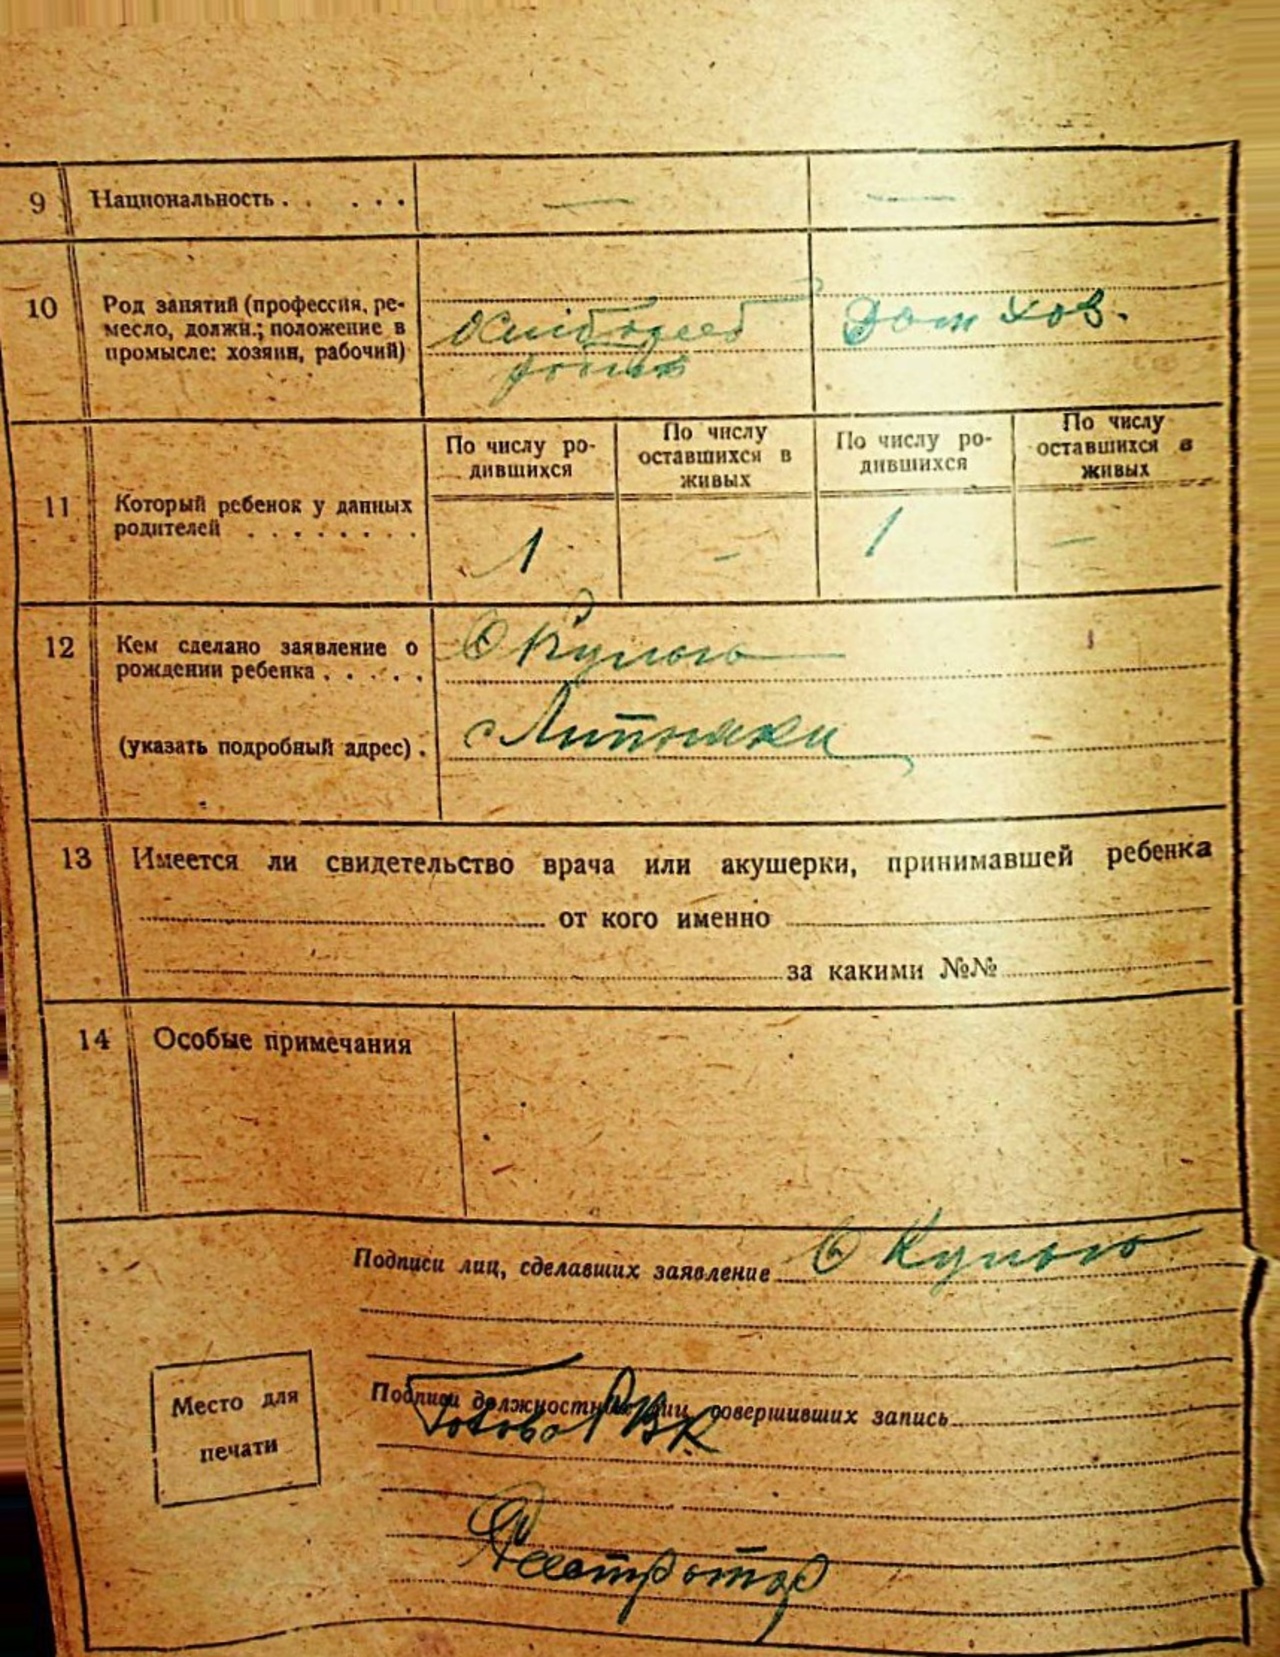 9 Национальность . . . . . — —
10 Род занятий (профессия, ре-
месло, должн.; положение в
промысле: хозяин, рабочий)
Дом хов.
По числу ро-
дившихся
По числу
оставшихся в
живых
По числу ро-
дившихся
По числу
оставшихся в
живых
11 Который ребенок у данных
родителей . . . . . . . .
1 - 1 —
12 Кем сделано заявление о
рождении ребенка . . . . .
(указать подробный адрес) .
с Липняки
13 Имеется ли свидетельство врача или акушерки, принимавшей ребенка
от кого именно
за какими №№
14 Особые примечания
Подписи лиц, сделавших заявление
Место для
печати
Подписи должностных лиц совершивших запись
Голова РВК
Реєстратор